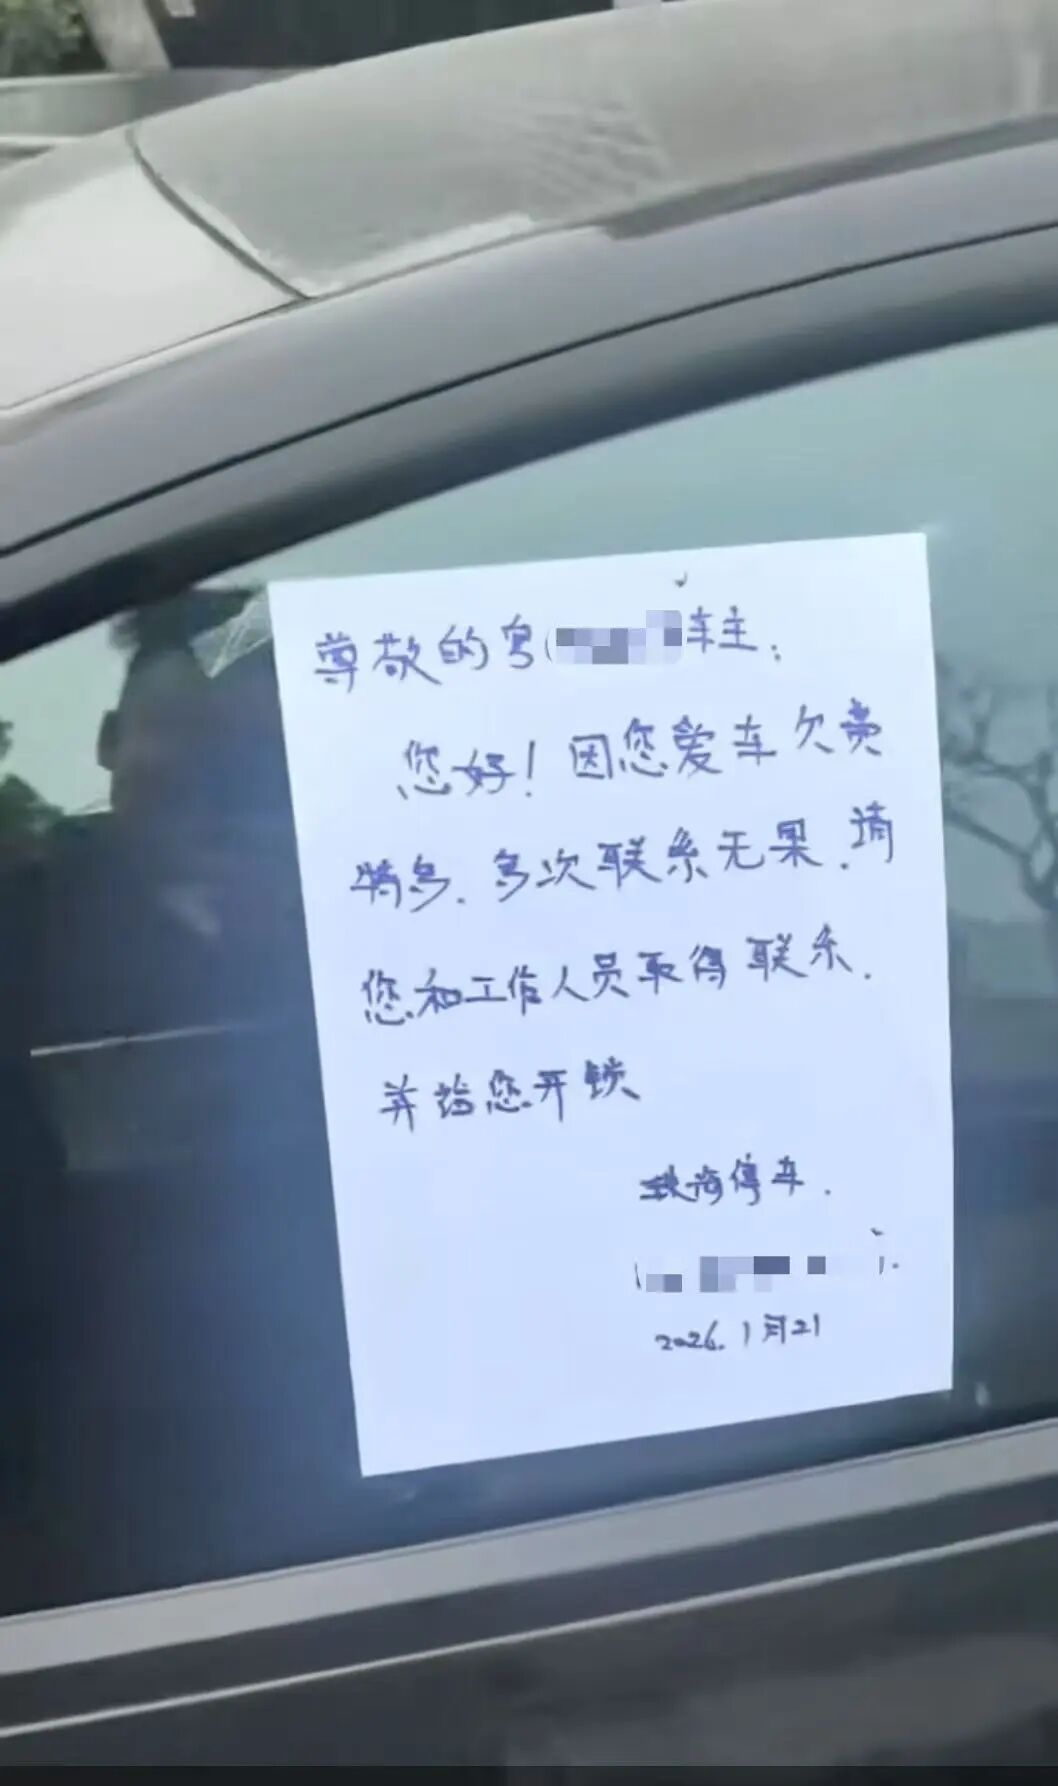 尊敬的粤 车主:
您好!因您爱车欠费
特多.多次联系无果.请
您和工作人员取得联系.
并给您开锁
珠海停车.
2026.1月21